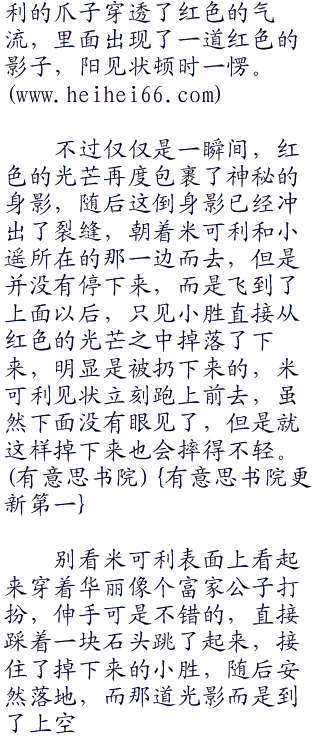 利的爪子穿透了红色的气
流，里面出现了一道红色的
影子，阳见状顿时一愣。
(www.heihei66.com)
不过仅仅是一瞬间，红
色的光芒再度包裹了神秘的
身影，随后这倒身影已经冲
出了裂缝，朝着米可利和小
遥所在的那一边而去，但是
并没有停下来，而是飞到了
上面以后，只见小胜直接从
红色的光芒之中掉落了下
来，明显是被扔下来的，米
可利见状立刻跑上前去，虽
然下面没有眼见了，但是就
这样掉下来也会摔得不轻。
(有意思书院) {有意思书院更
新第一}
别看米可利表面上看起
来穿着华丽像个富家公子打
扮，伸手可是不错的，直接
踩着一块石头跳了起来，接
住了掉下来的小胜，随后安
然落地，而那道光影而是到
了上空